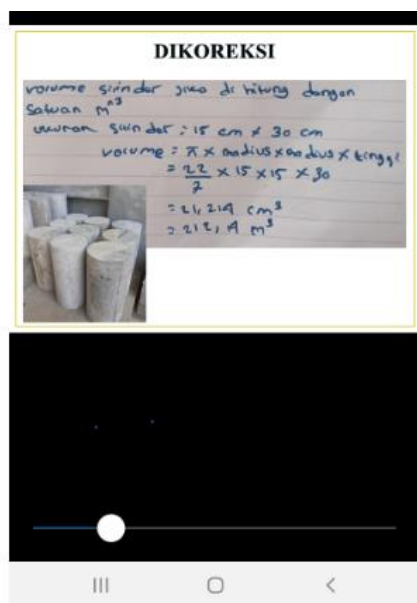 DIKOREKSI
volume silinder jika di hitung dengan
satuan m^3
ukuran silinder : 15 cm x 30 cm
volume = π x radius x radius x tinggi
= 22/7 x 15 x 15 x 30
= 21,214 cm³
= 212,14 m³